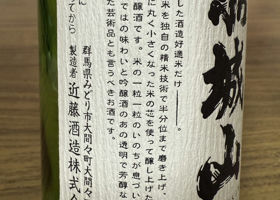 城山
した酒造好適米だけ――。
米を独自の精米技術で半分位まで磨き上げ、
に丸く小さくなった米の芯を使って醸し上げた
醸酒です。米の一粒一粒のいのちが息づい
ではの味わいと吟醸酒のあの透明で芳醇な
た芸術品とも言うべきお酒です。
ん
てから
群馬県みどり市大間々町大間々
製造者 近藤酒造株式会